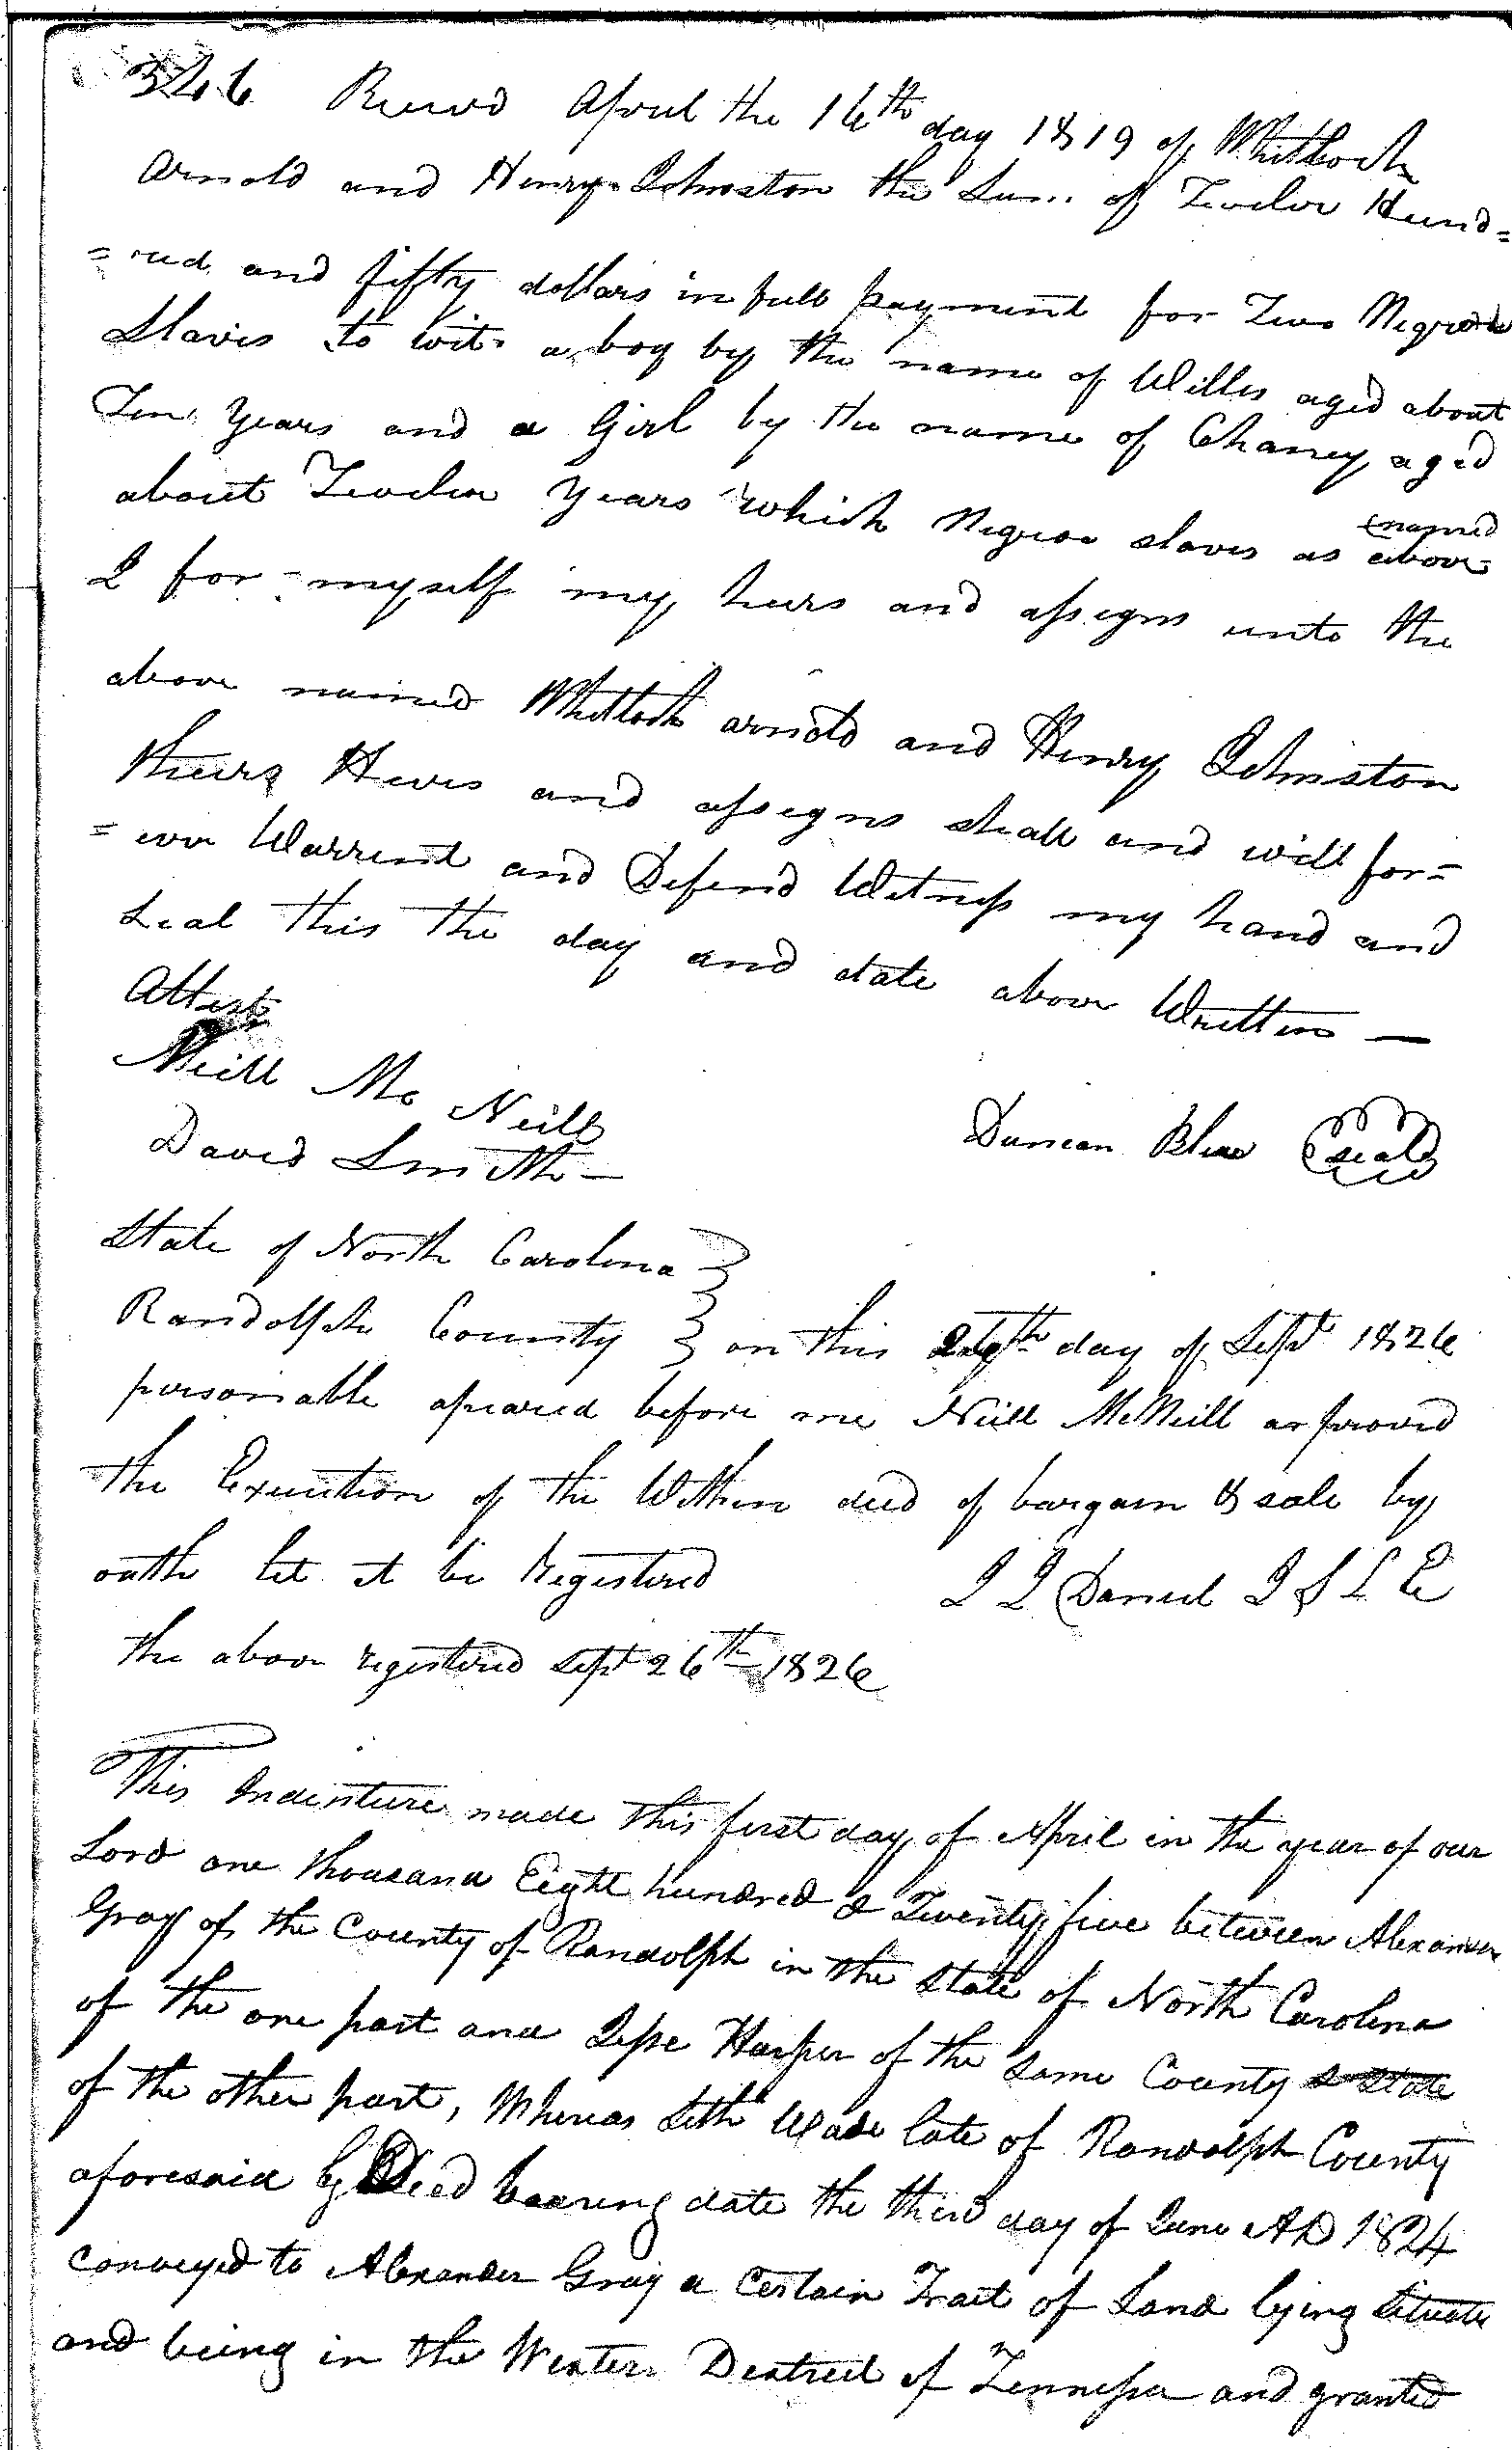 346 Recievd April the 16th day 1819 of Whitlock
Arnold and Henry Johnston the Sum of Twelve Hund=
=red and fifty dollars in full payment for Two Negroe
Slaves to wit a boy by the name of Willis aged about
Ten Years and a Girl by the name of Chaney aged
about Twelve Years which Negroe slaves as above named
I for myself my heirs and assigns unto the
above named Whitlock Arnold and Henry Johnston
theirs Heires and assigns shall and will for=
=ever Warrent and Defend Witness my hand and
Seal this the day and date above Written —
Attest
Neill Mc Neill
David Smith — Duncan Blue (seal)
State of North Carolina }
Randolph County } on this 26th day of Sept 1826
personable apeared before me Neill McNeill as proved
the Execution of the Within deed of bargain & sale by
oath let it be Registered J J Daniel J S L E
the above registered Sept 26th 1826
This Indenture made this first day of April in the year of our
Lord one thousand Eight hundred & Twenty five between Alexander
Gray of the County of Randolph in the State of North Carolina
of the one part and Jesse Harper of the Same County & State
of the other part, Whereas Seth Wade late of Randolph County
aforesaid by Deed bearing date the third day of June AD 1824
conveyed to Alexander Gray a Certain Tract of Land lying Situate
and being in the Western Destrect of Tennessee and granted